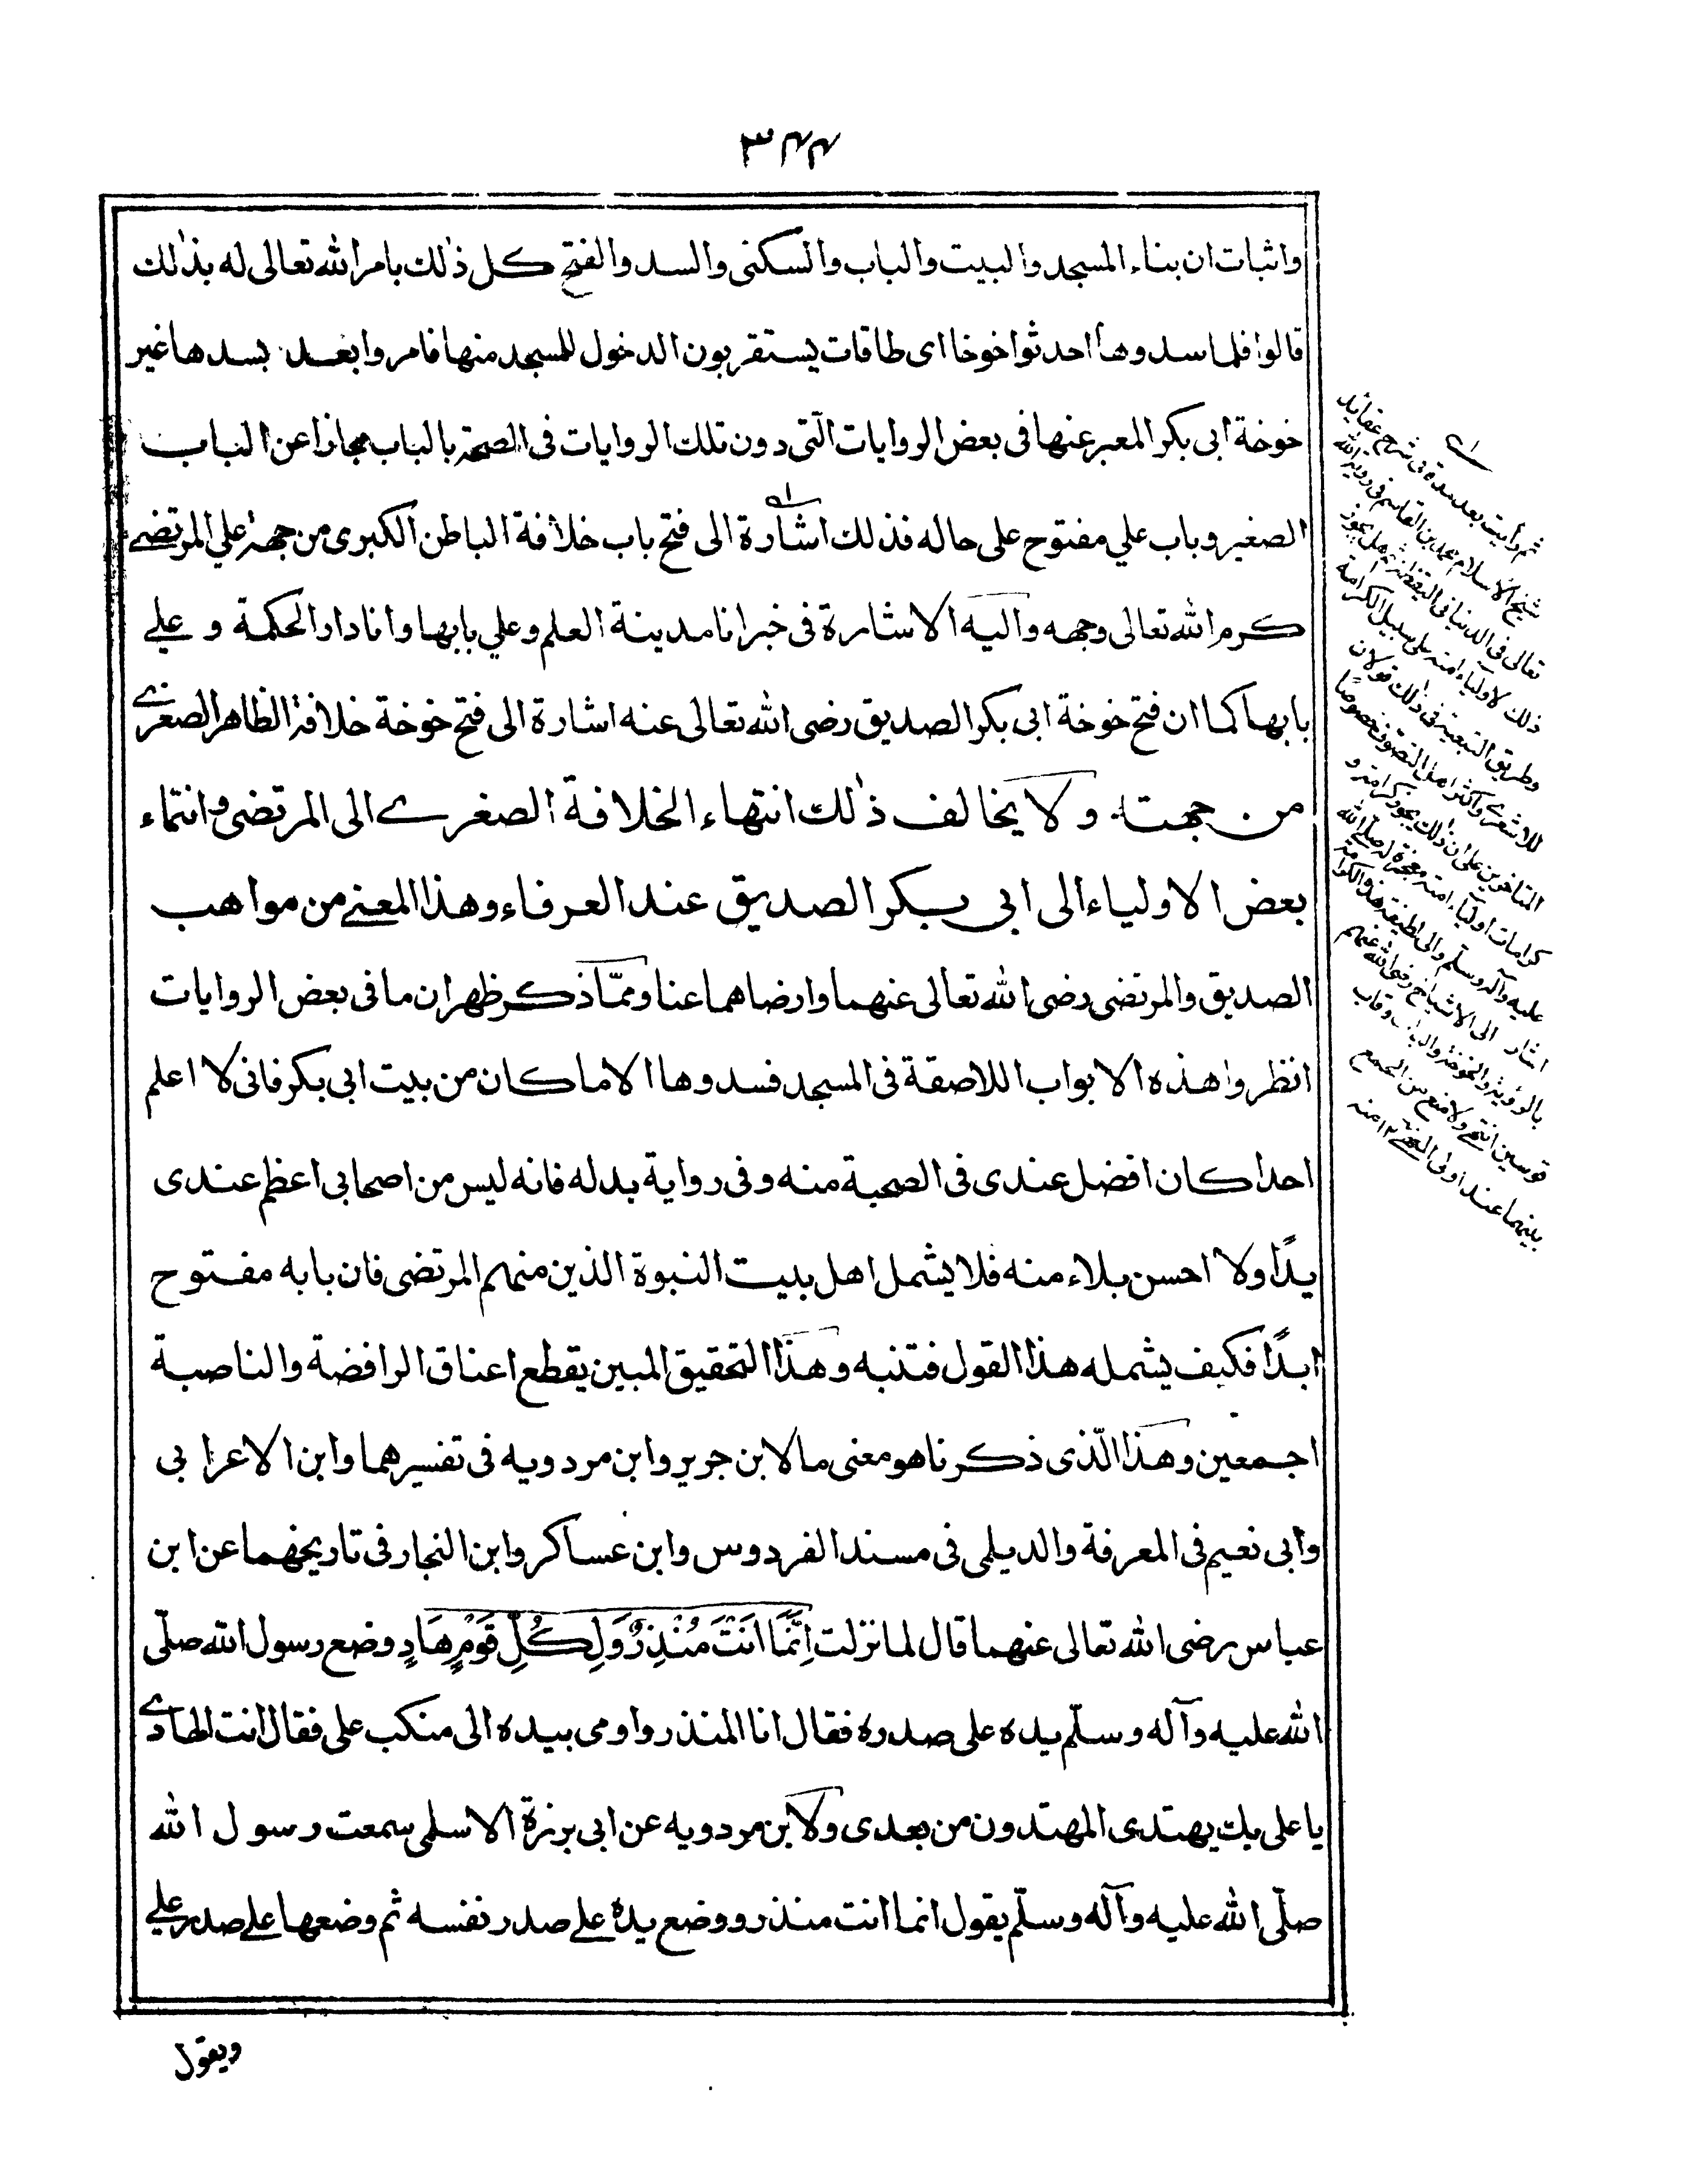 ٣٤٤
واثبات ان بناء المسجد والبيت والباب والسكنى والسد والفتح كل ذلك بامر الله تعالى له بذلك
قالوا فلما سدوها احدثوا خوخا اى طاقات يستقربون الدخول للمسجد منها فامروا بعد بسدها غير
خوخة ابى بكر المعبر عنها فى بعض الروايات التى دون تلك الروايات فى الصحة بالباب مجازا عن الباب
الصغير وباب علي مفتوح على حاله فذلك اشارة الى فتح باب خلافة الباطن الكبرى من جهة علي المرتضے
كرم الله تعالى وجهه واليه الاشارة فى خبر انا مدينة العلم وعلي بابها وانا دار الحكمة و علے
بابها كما ان فتح خوخة ابى بكر الصديق رضى الله تعالى عنه اشارة الى فتح خوخة خلافة الظاهر الصغرے
من جهته ولا يخالف ذلك انتهاء الخلافة الصغرے الى المرتضى وانتماء
بعض الاولياء الى ابى بكر الصديق عند العرفاء وهذا المعنے من مواهب
الصديق والمرتضى رضى الله تعالى عنهما وارضاهما عنا وممّا ذكر ظهر ان ما فى بعض الروايات
انظروا هذه الابواب اللاصقة فى المسجد فسدوها الا ما كان من بيت ابى بكر فانى لا اعلم
احدا كان افضل عندى فى الصحبة منه وفى رواية بدله فانه ليس من اصحابى اعظم عندى
يدًا ولا احسن بلاء منه فلا يشمل اهل بيت النبوة الذين منهم المرتضى فان بابه مفتوح
ابدًا فكيف يشمله هذا القول فتنبه وهذا التحقيق المبين يقطع اعناق الرافضة والناصبة
اجمعين وهذا الّذى ذكرناه هو معنى ما لابن جرير وابن مردويه فى تفسيرهما وابن الاعرابى
وابى نعيم فى المعرفة والديلمى فى مسند الفردوس وابن عساكر وابن النجار فى تاريخهما عن ابن
عباس رضى الله تعالى عنهما قال لما نزلت اِنَّمَا اَنْتَ مُنْذِرٌ وَلِكُلِّ قَوْمٍ هَادٍ وضع رسول الله صلّى
الله عليه وآله وسلّم يده على صدره فقال انا المنذر واومى بيده الى منكب على فقال انت الهادے
يا على بك يهتدى المهتدون من بعدى ولابن مردويه عن ابى برزة الاسلمى سمعت رسول الله
صلّى الله عليه وآله وسلّم يقول انما انت منذر ووضع يده علے صدر نفسه ثم وضعها علے صدر علے
ويقول
ثم رأيت بعد مدة فى شرح عقائد
شيخ الاسلام محمد بن القاسم فى روية الله
تعالى فى الدنيا فى اليقظة هل يجوز
ذلك لاولياء امته على سبيل الكرامة
وطريق التبعية فى ذلك قولان
للاشعرے واكثر اهل التصوف خصوصًا
المتاخرين على ان ذلك يجوز كرامة و
كرامات اولياء امته معجزة له صلى الله
عليه وآله وسلم والى لطيفة هذه الكرامة
اشار الى الاشياخ رضى الله عنهم
بالروية والخوخة والباب وقاب
قوسين انتهے ولا منع من الجمع
بينهما عند اولى ١٢ منه